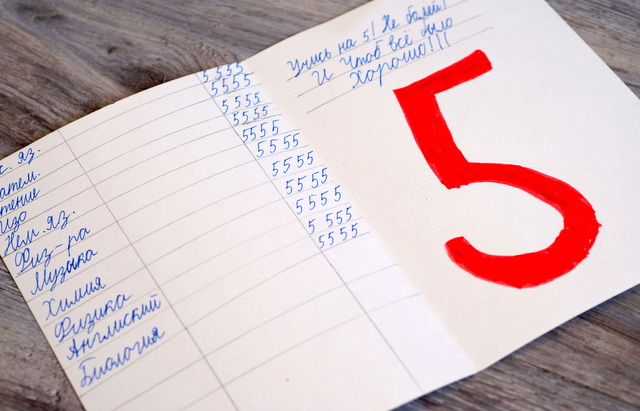 с. яз. 5555
атем. 5555
тение 5555
Изо 5555
Нем. яз. 5555
Физ-ра 5555
Музыка 5555
Химия 5555
Физика 5555
Англиский 5 555
Биология 5555
Учись на 5! Не болей!
И Чтоб всё было
Хорошо!!!
5